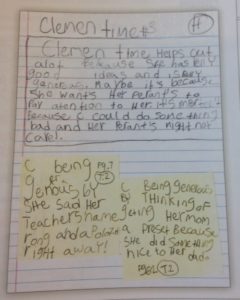 Clemen time #5
H
Clemen time Helps out
alot because she has rily
good ideas and is very
generous. Maybe it's because
she wants Her Perants to
Pay atention to Her.
because C could do something
bad and Her Perants might not
Care!
C being pg.7
T2
genrous by
She said Her
Teachers name
rong and apolog
right away!
C Being generous
by Thinking of
geting Her mom
a preset Because
she did something
nice to Her dad.
T2